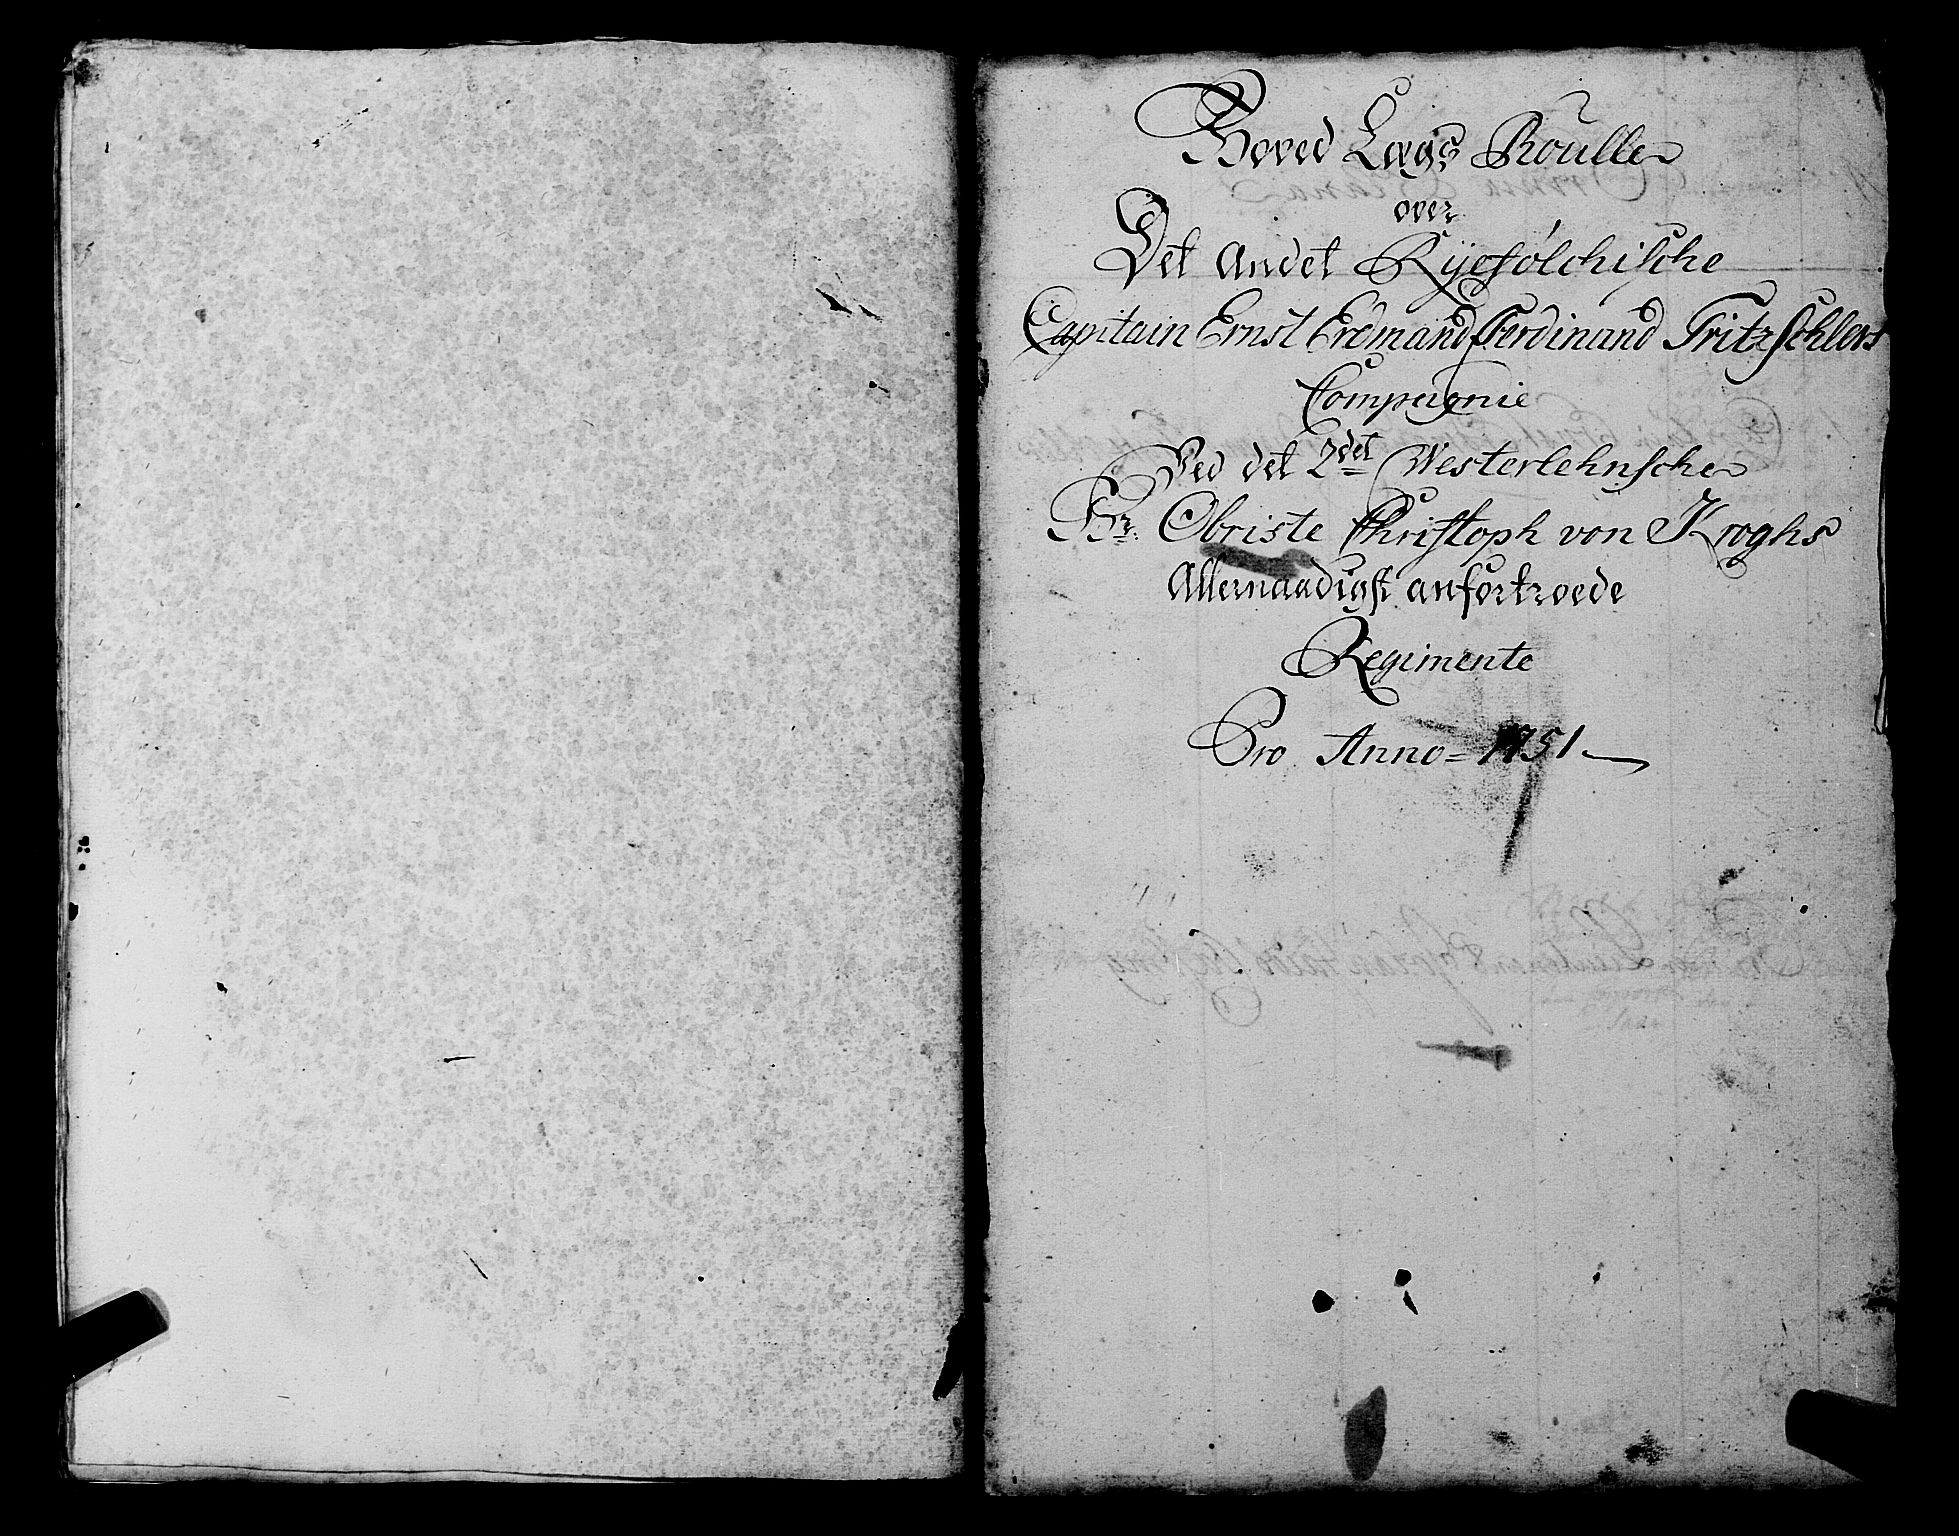 Hoved Lægs Roulle
over
Det Andet Ryefölchische
Capitain Ernst Erdmand Ferdinand Fritz Schlers
Compagnie
Ved det 2det Westerlehnsche
Hr. Obriste Christoph von Kroghs
Allernaadigst anfortroede
Regimente
Pro Anno = 1751